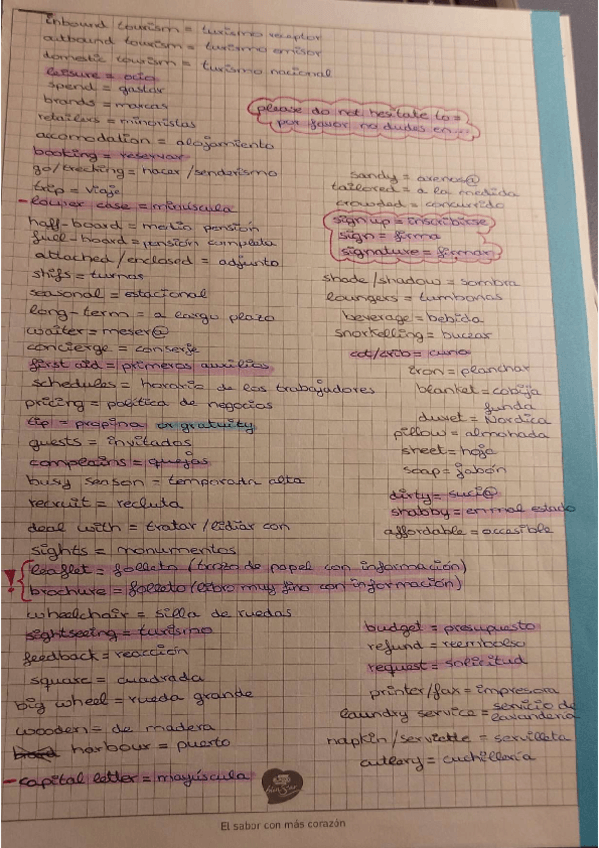 inbound tourism = turismo receptor
outbound tourism = turismo emisor
domestic tourism = turismo nacional
leisure = ocio
spend = gastar
brands = marcas
retailers = minoristas
acomodation = alojamiento
booking = reservar
go/trecking = hacer/senderismo
trip = viaje
- lower case = minúscula
half-board = media pensión
full-board = pensión completa
attached/enclosed = adjunto
shifs = turnos
seasonal = estacional
long-term = a largo plazo
waiter = meser@
concierge = conserje
first aid = primeros auxilios
schedules = horario de los trabajadores
pricing = política de negocios
tip = propina or gratuity
guests = invitados
complains = quejas
busy senson = temporada alta
recruit = recluta
deal with = tratar/lidiar con
sights = monumentos
! leaflet = folleto (trozo de papel con información)
brochure = folleto (libro muy fino con información)
wheelchair = silla de ruedas
sightseeing = turismo
feedback = reacción
square = cuadrada
big wheel = rueda grande
wooden = de madera
harbour = puerto
- capital letter = mayúscula
please do not hesitate to =
por favor no dudes en...
sandy = arenos@
tailored = a la medida
crowded = concurrido
sign up = inscribirse
sign = firma
signature = firmar
shade/shadow = sombra
loungers = tumbonas
beverage = bebida
snorkelling = bucear
cot/crib = cuna
iron = planchar
blanket = cobija
duvet = funda
Nordica
pillow = almohada
sheet = hoja
soap = jabón
dirty = suci@
shabby = en mal estado
affordable = accesible
budget = presupuesto
refund = reembolso
request = solicitud
printer/fax = impresora
laundry service = servicio de
lavandería
napkin/serviette = servilleta
cutlery = cuchillería
El sabor con más corazón